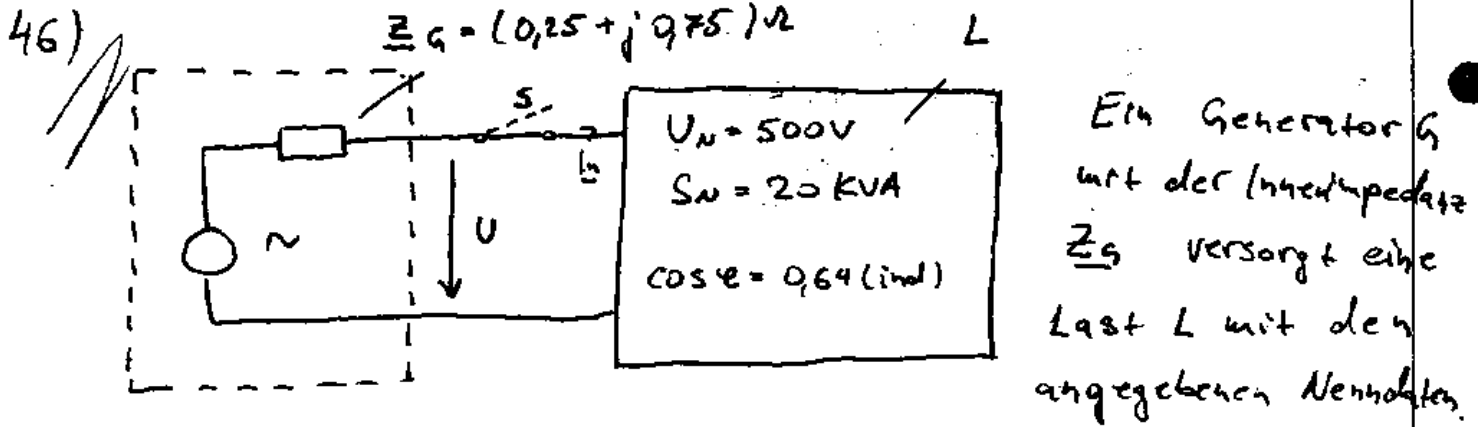 46)
Z G = (0,25 + j 0,75) Ω
L
S
U
~
U_N = 500V
S_N = 20 KVA
cos φ = 0,64 (ind)
Ein Generator G
mit der Innenimpedanz
Z_G versorgt eine
Last L mit den
angegebenen Nenndaten.